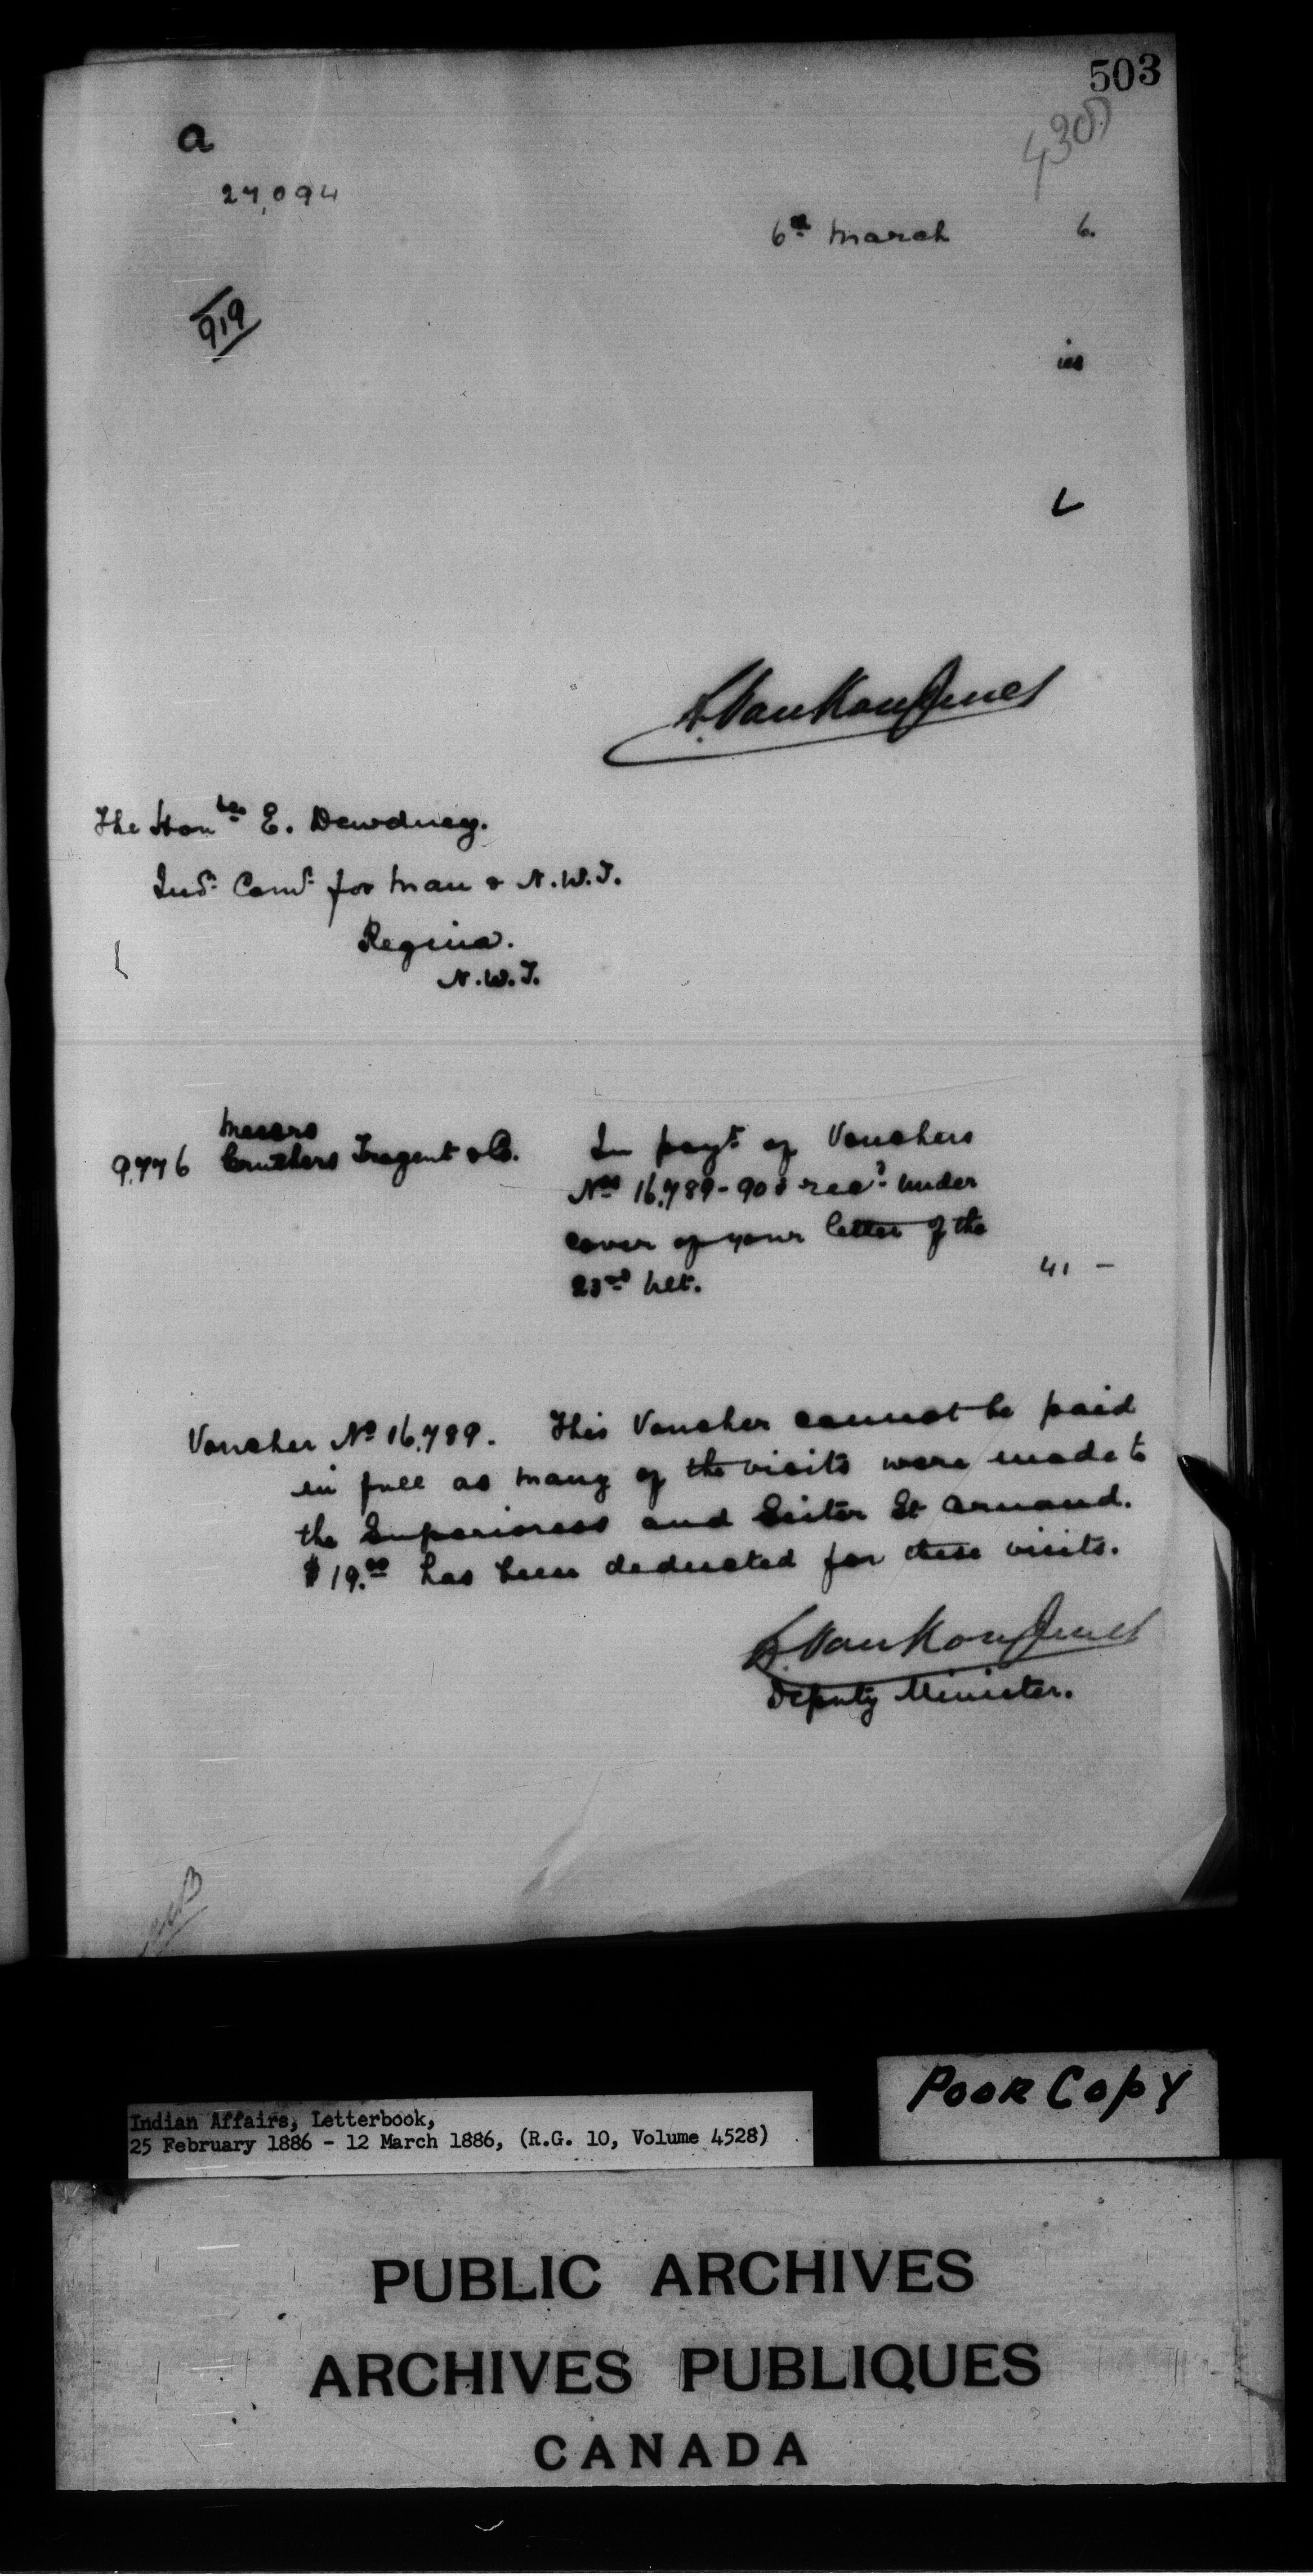 503
a
430
27,094
6th March 6.
919
is
L. VanKoughnet
The Honble E. Dewdney.
Ind. Comr. for Man & N.W.T.
Regina.
N.W.T.
Messrs
9.776 Tregent & Co. In payt. of Vouchers
Nos 16.789-90 & recd. under
cover of your letter of the
23rd ult. 41 -
Voucher No 16.789. This Voucher cannot be paid
in full as many of the visits were made to
the Superioress and Sister St Arnaud.
$19.00 has been deducted for these visits.
L. VanKoughnet
Deputy Minister.
POOR COPY
Indian Affairs, Letterbook,
25 February 1886 - 12 March 1886, (R.G. 10, Volume 4528)
PUBLIC ARCHIVES
ARCHIVES PUBLIQUES
CANADA